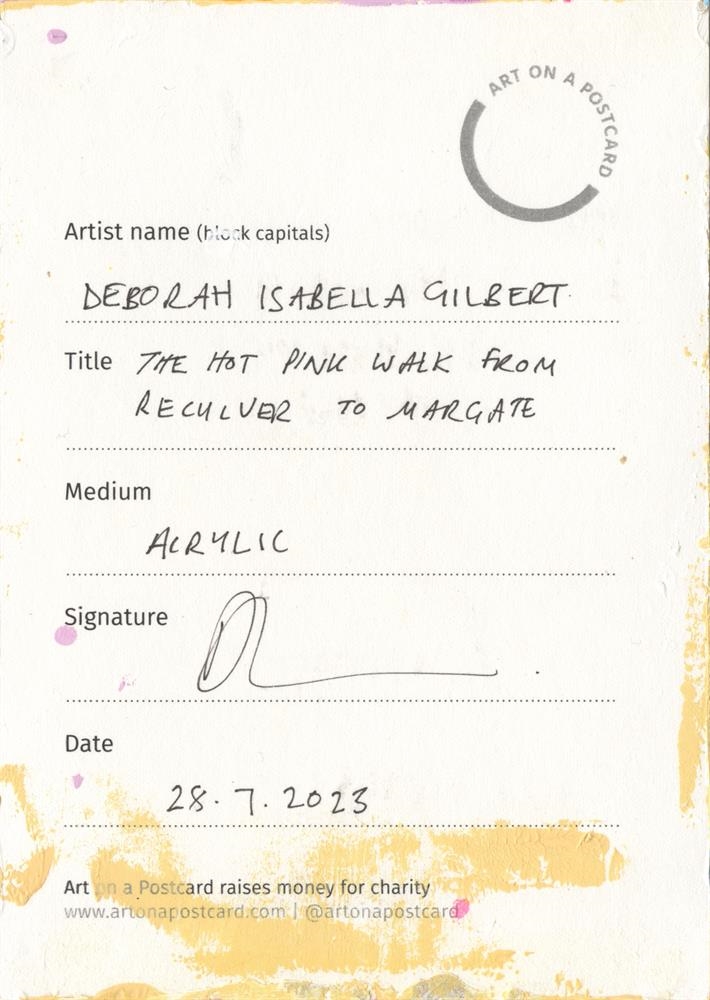 ART ON A POSTCARD
Artist name (block capitals)
DEBORAH ISABELLA GILBERT
Title THE HOT PINK WALK FROM
RECULVER TO MARGATE
Medium
ACRYLIC
Signature
Date
28.7.2023
Art on a Postcard raises money for charity
www.artonapostcard.com | @artonapostcard